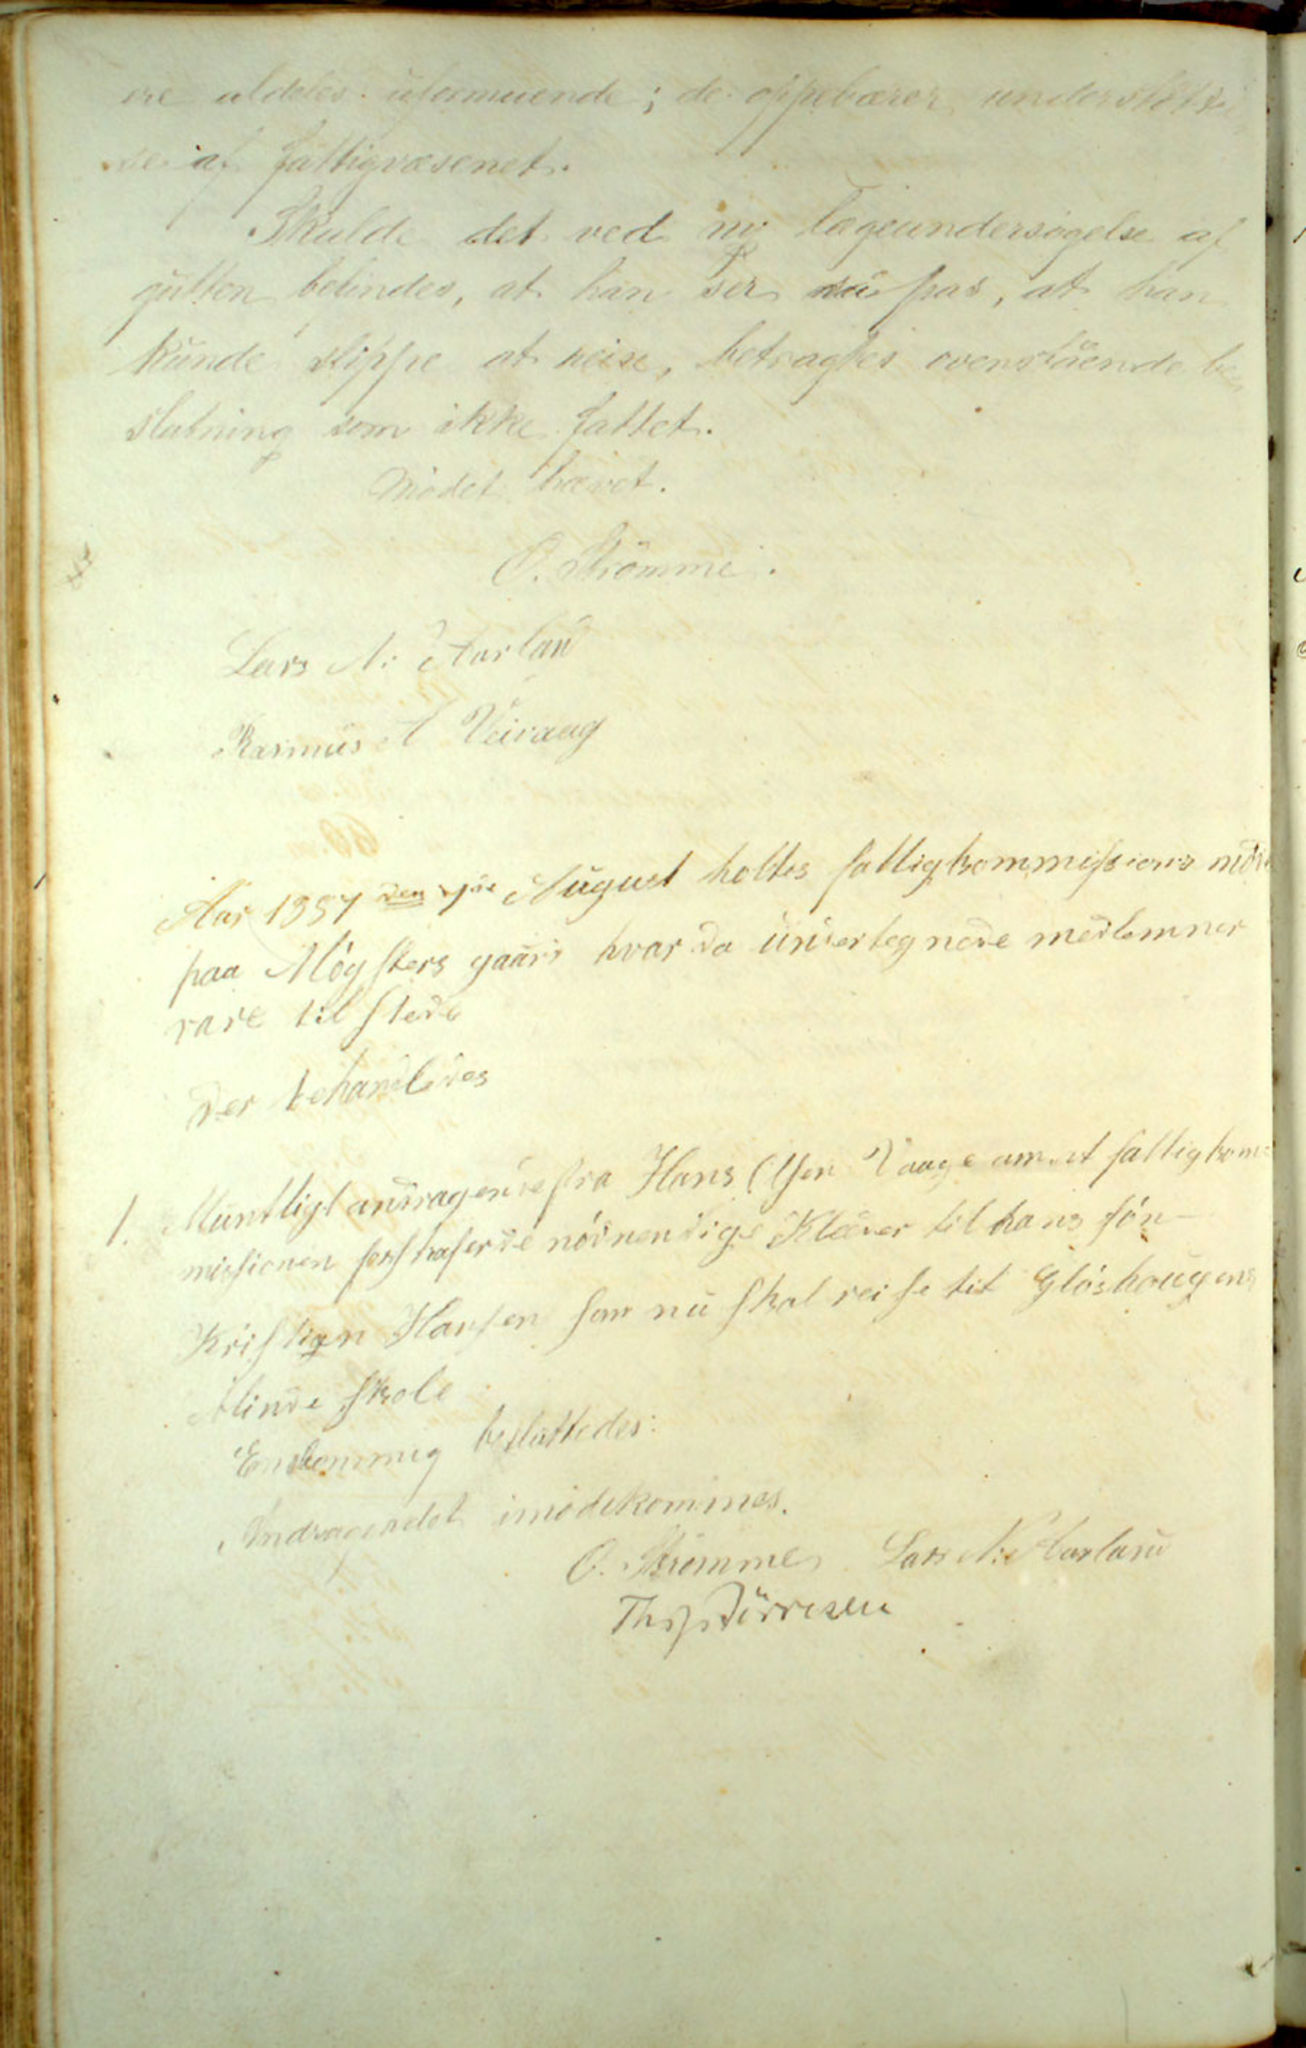 ere aldeles uformuende; de oppebærer understøttel
se af fattigvæsenet.
Skulde det ved ny lægeundersøgelse af
gutten befindes, at han ser saa pas, at han
kunde slippe at reise, betragtes ovenstående be
slutning som ikke fattet.
Mødet hævet.
O. Strömme.
Lars N: Aarland
Rasmus A Veivaag
Aar 1887 den August holtes fattigkommissions möde
paa Mögsters gaard hvor da undertegnede medlemmer
vare til stede
Der behandledes
1. Muntligt andragende fra Hans Olsen Vaage om at fattigkom
missionen forskaferde nödvendige Klæder til hans sön
Kristian Hansen som nu skal reise til Glöshougens
Blinde skole
Enstemmig besluttedes:
Andragendet imødekommes.
O. Strömme Lars N: Aarland
Ths Törresen